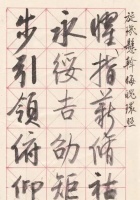 旋璣懸斡晦魄環照
指薪脩祜
永綏吉劭矩
步引領俯仰